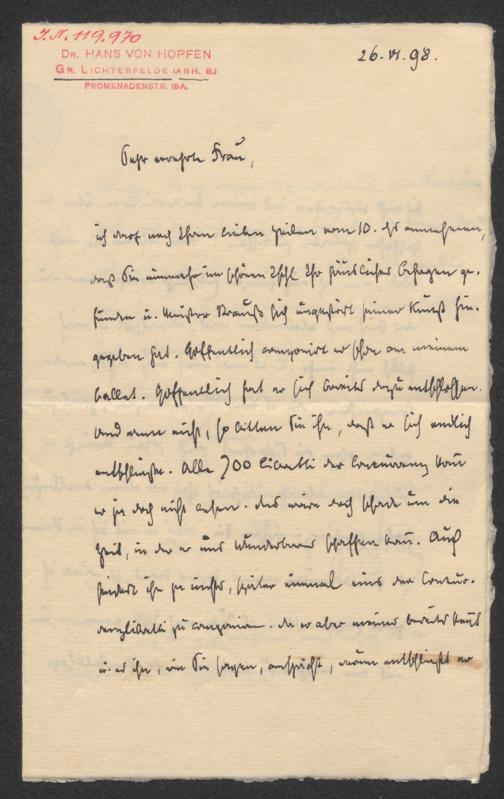 J.N. 119.970
DR. HANS VON HOPFEN
GR. LICHTERFELDE (ANH. B.)
PROMENADENSTR. 15A.
26. VI. 98.
Sehr verehrte Frau,
ich darf nach Ihren lieben Zeilen vom 10. ds annehmen,
daß Sie nunmehr im schönen Ischl Ihr häusliches Behagen ge-
funden u. Meister Strauß sich ungestört seiner Kunst hin-
gegeben hat. Hoffentlich componirt er schon an meinem
Ballet. Hoffentlich hat er sich bereits dazu entschlossen.
Und wenn nicht, so bitten Sie ihn, daß er sich endlich
entschließe. Alle 700 Libretti der Concurrenz kann
er ja doch nicht ansehen. Das wäre doch schade um die
Zeit, in der er uns Wunderbares schaffen kann. Auch
hindert ihn ja nichts, später einmal eins der Concur-
renzlibretti zu componiren. Da er aber meines bereits kennt
u. es ihn, wie Sie sagen, anspricht, warum entschließt er